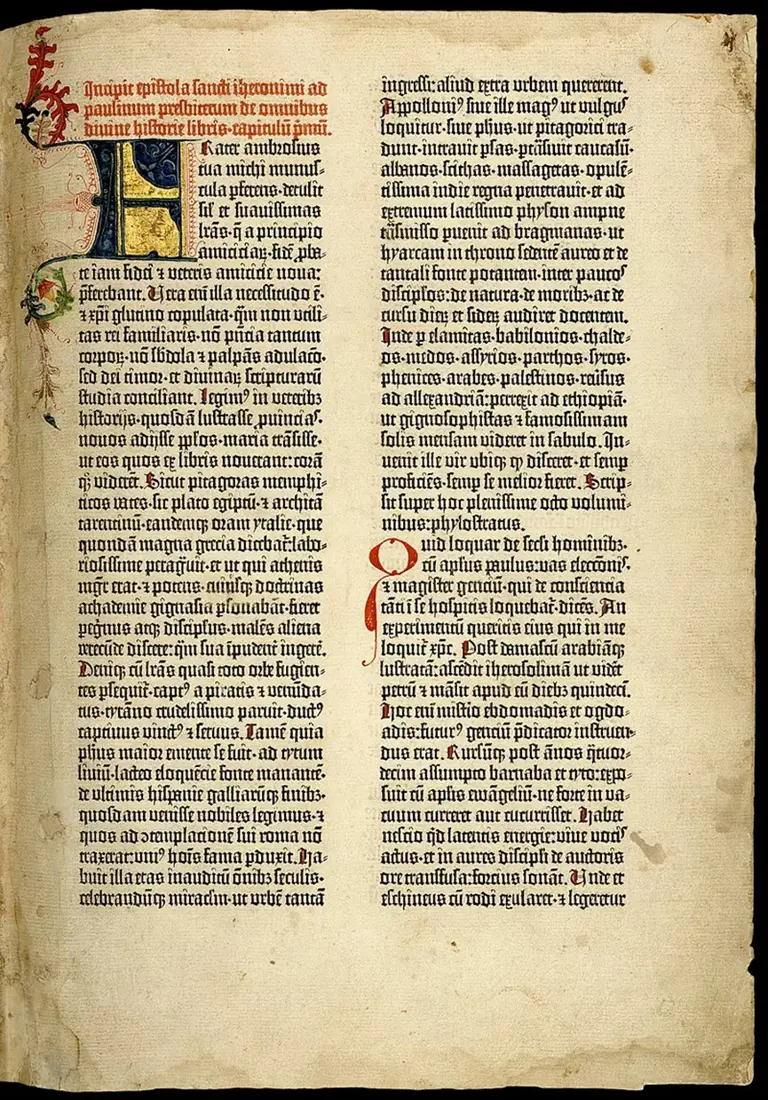 Incipit epistola sancti iheronimi ad
paulinum presbiterum de omnibus
divine historie libris·capitulū pmū.
Frater ambrosius
tua michi munus⸗
cula pferens·detulit
sil' et suavissimas
lrās·q̄ a principio
amicicia4·fidē pba⸗
te iam fidei ⁊ veteris amicicie nova:
pferebant. Vera em̄ illa necessitudo ē·
⁊ xpi glutino copulata·qm̄ non utili⸗
tas rei familiaris·nō pn̄cia tantum
corpo4·nō sbdola ⁊ palpās adulaco·
sed dei timor·et divina4 scripturarū
studia conciliant. Legim⁹ in veterib3
historijs·quosdā lustrasse puincias·
novos adijsse pplos·maria trāsisse·
ut eos quos ex libris noverant: corā
q3 viderēt. Sicut pitagoras memphi⸗
ticos vates·sic plato egiptū·⁊ architā
tarentinū·eandemq3 oram ytalie·que
quondā magna grecia dicebat̄: labo⸗
riosissime peragūit·et ut qui athenis
mgr̄ erat·⁊ potens·cuiusq3 doctrinas
achademie gignasia psonabāt·fieret
pegrinus atq3 discipulus·malēs aliena
verecūde discere: qm̄ sua īpudent̄ ingeré.
Deniq3 cū lrās quasi toto orbe fugien⸗
tes pseqt̄·capt⁹ a piratis ⁊ venūda⸗
tus·tyrāno crudelissimo paruit·duct⁹
captivus vinct⁹ ⁊ servus. Tamē quia
phus maior emente se fuit·ad tytum
liviū·lacteo eloquēcie fonte manantē·
de ultimis hispanie galliarūq3 finib3·
quosdam venisse nobiles legimus·⁊
quos ad ↄtemplacionē sui roma nō
traxerat: uni⁹ hoīs fama pduxit. Ha⸗
buit illa etas inauditū ōnib3 seculis·
celebrandūq3 miraclm·ut urbē tantā
ingressi: aliud extra urbem quererent.
Appolloni⁹ sive ille mag⁹ ut vulgus
loquitur·sive phus·ut pitagorici tra⸗
dunt·intravit psas·ptrāsivit caucasū·
albanos·scithas·massagetas·opulē⸗
tissima indie regna penetravit·et ad
extremum latissimo physon ampne
trāsmisso puenit ad bragmanas·ut
hyarcam in throno sedentē aureo et de
tantali fonte potantem·inter paucos
discipulos: de natura·de morib3·ac de
cursu die4 et side4 audiret docentem.
Inde p elamitas·babilonios·chalde⸗
os·medos·assyrios·parthos·syros·
phenices·arabes·palestinos·revsus
ad allexandriā: perrexit ad ethiopiā·
ut gignosophistas ⁊ famosissimam
solis mensam videret in sabulo. In⸗
venit ille vir ubiq3 qd disceret·et semp
proficiēs·semp se melior fieret. Scrip⸗
sit super hoc plenissime octo volumi⸗
nibus: phylostratus.
Quid loquar de secli hominib3·
cū aplus paulus: vas elecconis·
⁊ magister genciū·qui de consciencia
tāti ī se hospitis loquebat̄·dicēs. An
experimentū queritis eius qui in me
loquit̄ xpc. Post damascū arabiāq3
lustratā: ascēdit iherosolimā ut vidēt
petrū ⁊ māsit apud eū dieb3 quindecī.
Hoc em̄ misterio ebdomadis et ogdo⸗
adis: futur⁹ genciū pdicator instruen⸗
dus erat. Rursūq3 post ānos q̄tuor⸗
decim assumpto barnaba et tyto: expo⸗
suit cū aplis ewāgeliū·ne forte in va⸗
cuum curreret aut cucurrisset. Habet
nescio qd latentis energie: vive vocis
actus·et in aures discipli de auctoris
ore transfusa: forcius sonāt. Unde et
eschineus cū rodi exularet·⁊ legeretur